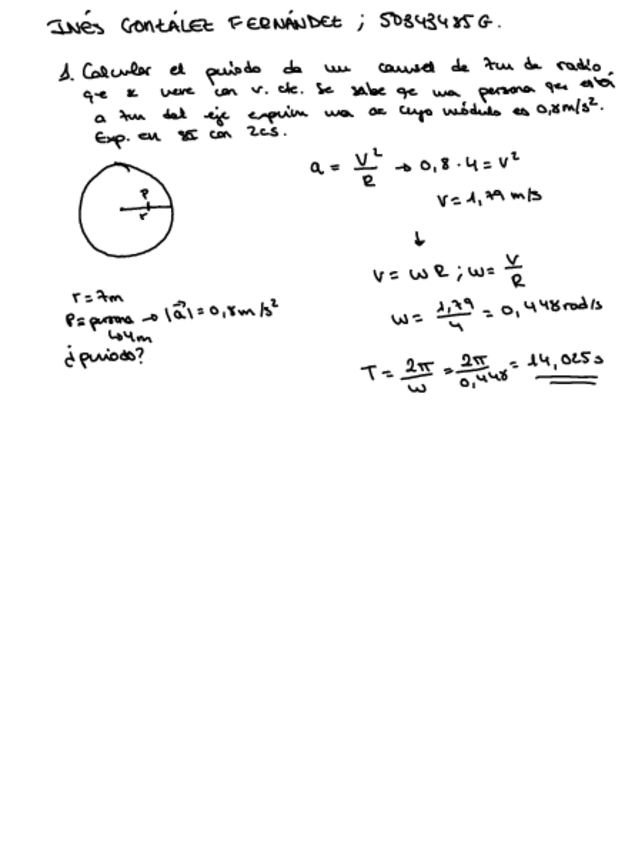 INÉS GONZÁLEZ FERNÁNDEZ ; 50343485G.
1. Calcular el periodo de un carrusel de 7m de radio
que se mueve con v. cte. Se sabe qe una persona qe está
a 4m del eje experim una ac cuyo módulo es 0,8m/s².
Exp. en SI con 2cs.
P
r
a = V²/R → 0,8 · 4 = V²
V = 1,79 m/s
↓
V = ω R ; ω = V/R
ω = 1,79/4 = 0,448 rad/s
T = 2π/ω = 2π/0,448 = 14,025 s
r = 7m
P = persona → |a⃗| = 0,8 m/s²
↳ 4m
¿periodo?